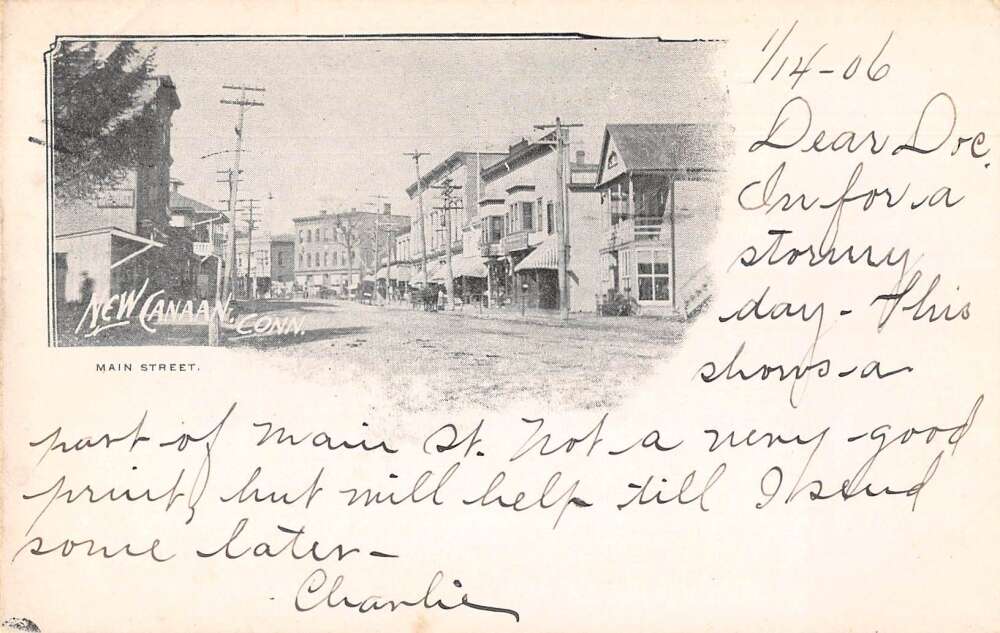 NEW CANAAN, CONN.
MAIN STREET.
1/14-06
Dear Doc,
In for a
stormy
day - This
shows a
part of Main St. Not a very good
print, but will help till I send
some later -
Charlie